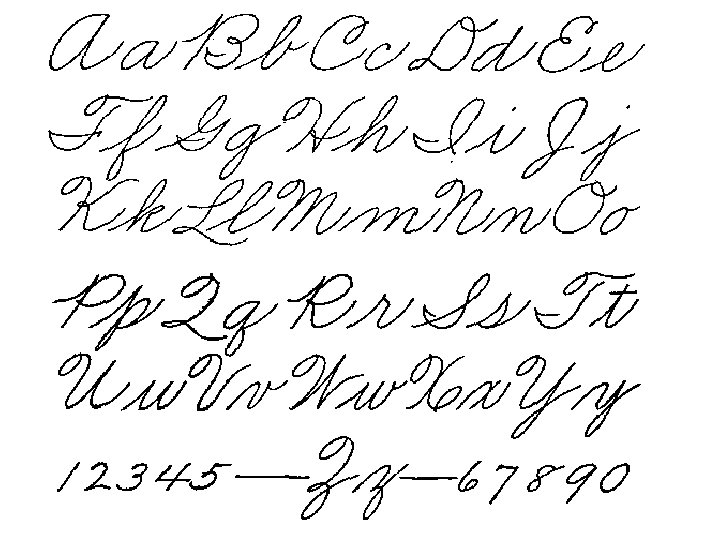 Aa Bb Cc Dd Ee
Ff Gg Hh Ii Jj
Kk Ll Mm Nn Oo
Pp Qq Rr Ss Tt
Uu Vv Ww Xx Yy
12345 — Zz — 67890